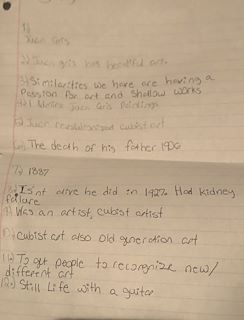 1)
Juan Gris
2) Juan gris has beautiful art.
3) Similarities we have are having a
Passion for art and Shallow works
4) I Admire Juan Gris Paintings
5) Juan revolutionized cubist art
6) The death of his father 1906
7) 1887
8) Isnt alive he did in 1927. Had kidney
failure
9) Was an artist, cubist artist
10) cubist art also Old generation art
11) To get people to recognize new/
different art
12) Still Life with a guitar